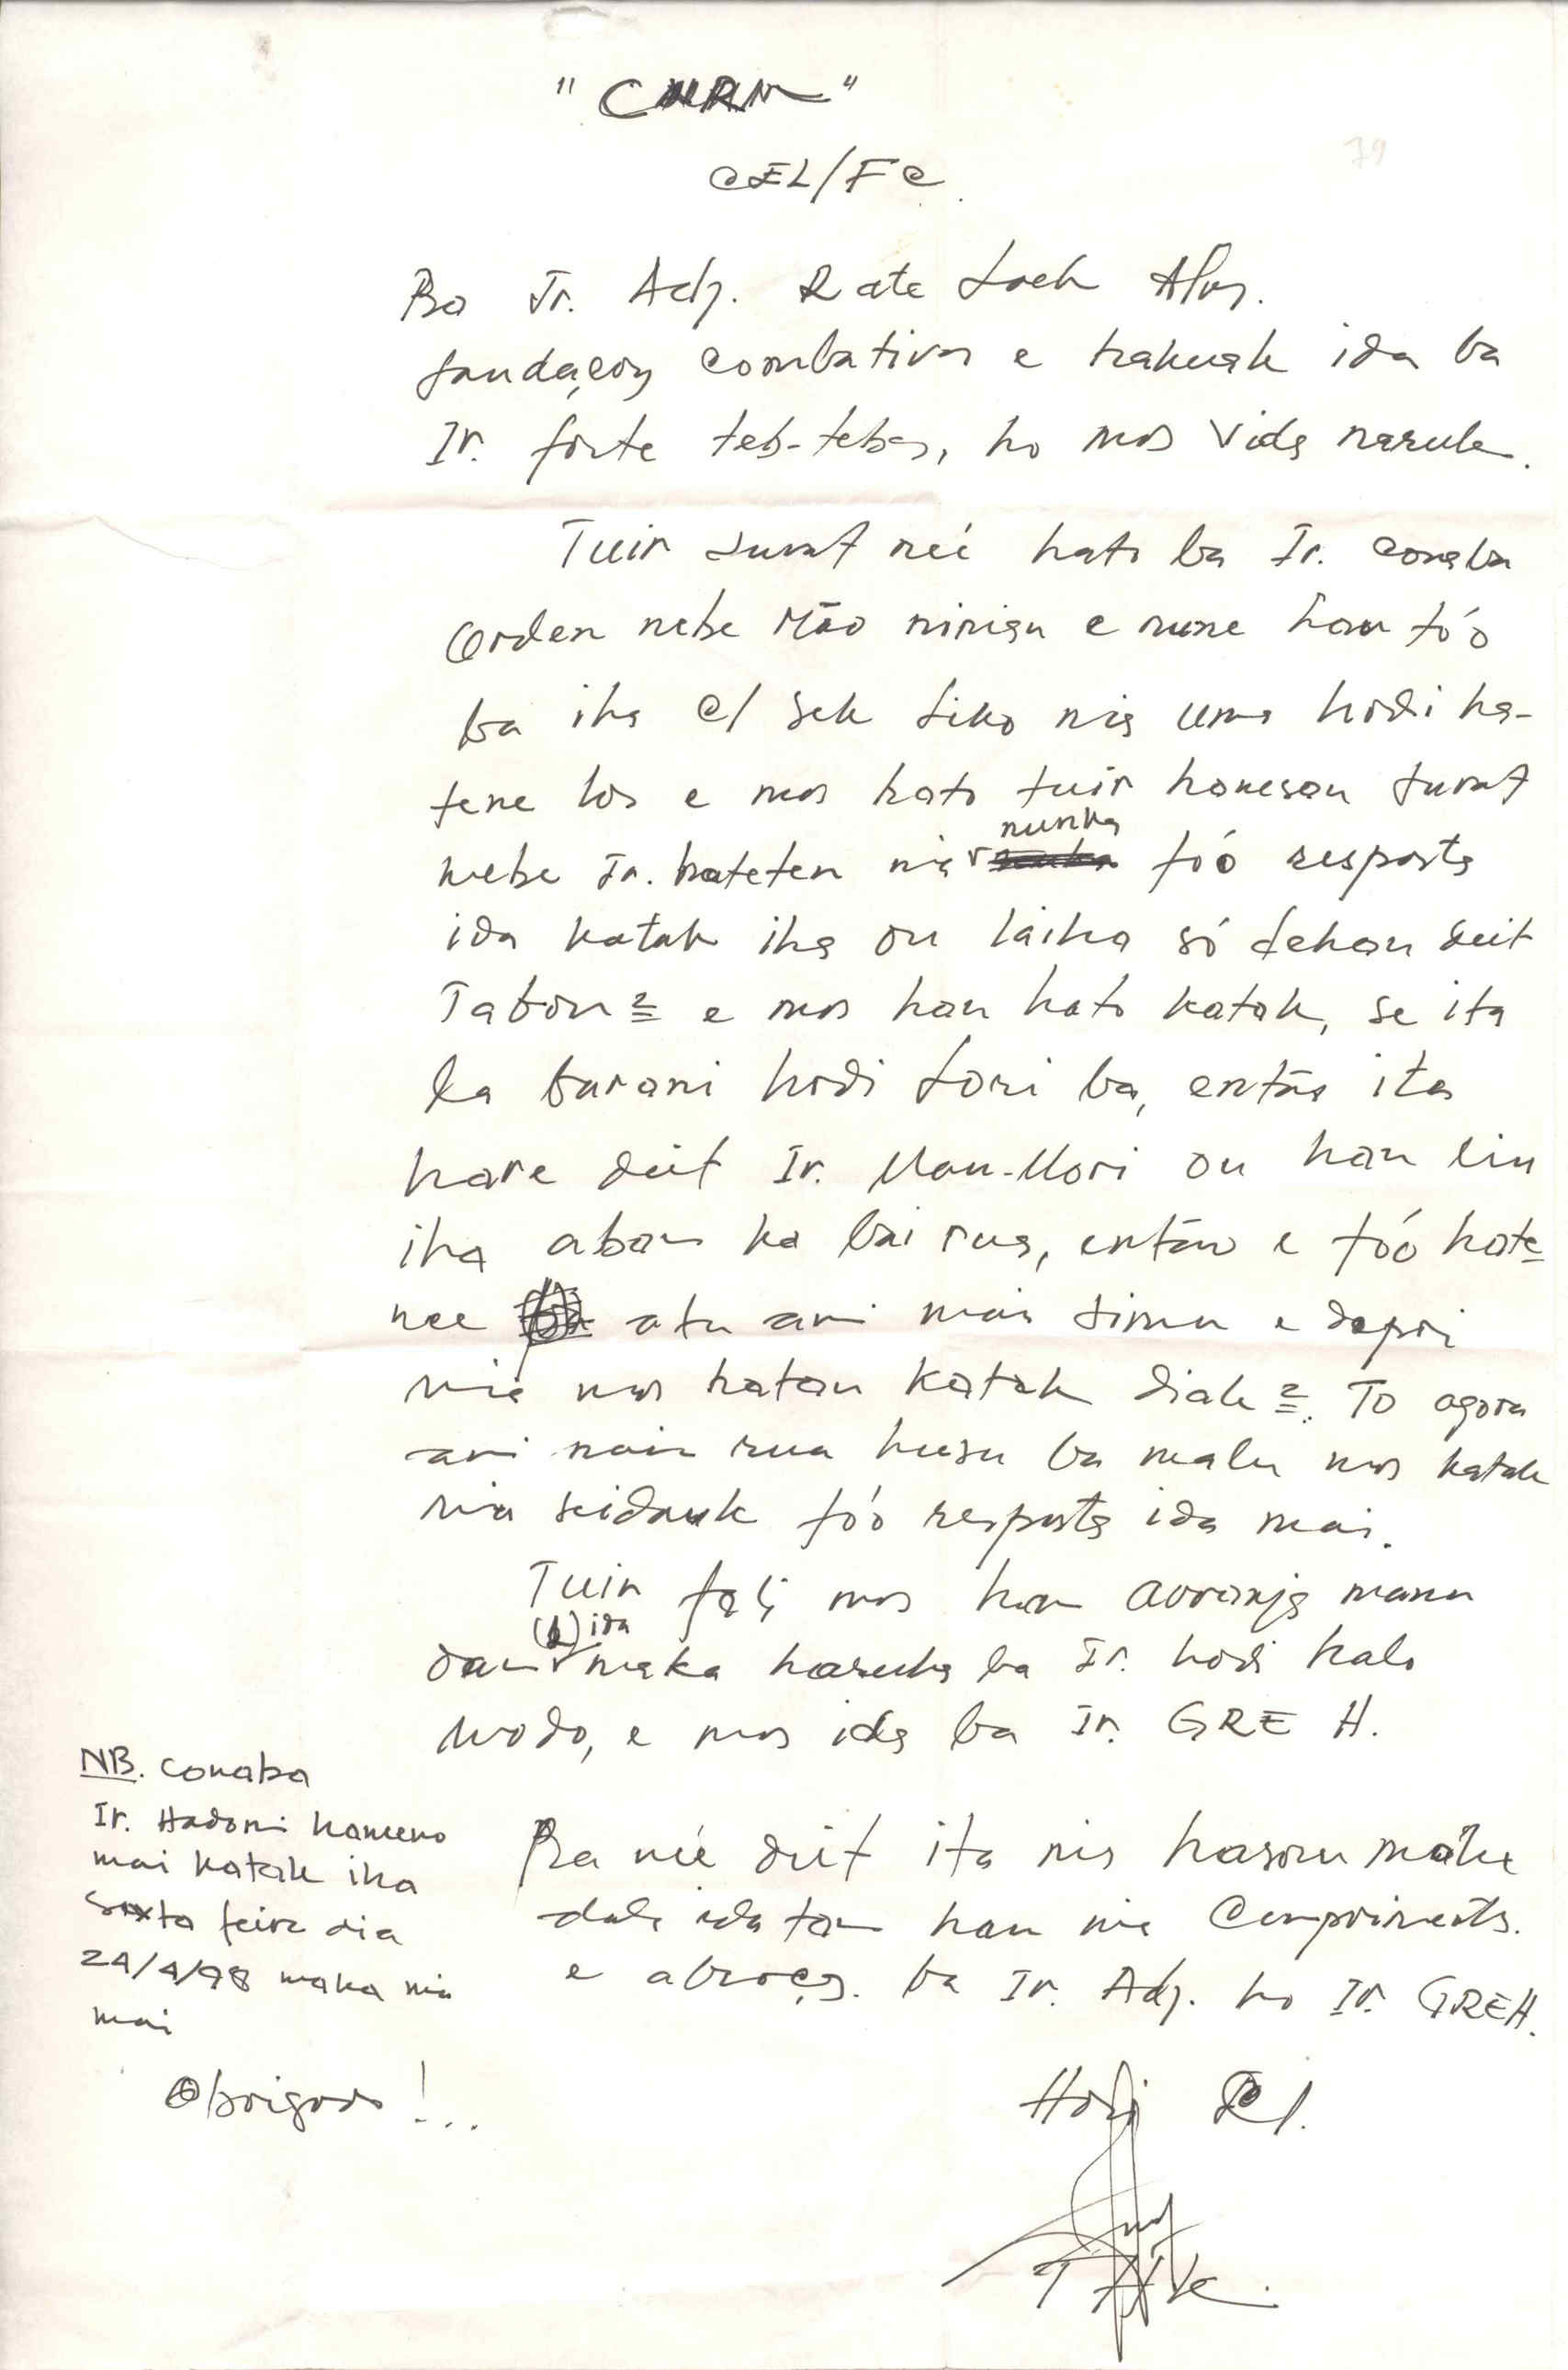 " CNRM "
CEL/FC.
79
Ba Ir. Adj. Rate Laek Alas.
Saudaçoes combativas e hakuak ida ba
Ir. forte teb-tebes, ho mos vida naruk.
Tuir surat neé hato ba Ir. conaba
Orden nebe Mão ninian e nune hau tóo
ba iha C/ Sek Siko nia uma hodi ha-
tene los e mos hato tuir hanesan surat
nebe Ir. hateten nia nunka fóo resposta
ida katak iha ou laiha só dehan deit
Tabon = e mos hau hato katak, se ita
la barani hodi Lori ba, então ita
hare deit Ir. Mau-Mori ou hau liu
iha aban ka bai rua, então e fóo hate-
nee atu ami mai simu e depoi
nia mos hatan katak diak 2. To agora
ami nain rua husu ba malu mos katak
nia seidauk fóo resposta ida mai.
Tuir fali mos hau arranja manu
dan (1) ida maka haruka ba Ir. hodi halo
modo, e mos ida ba Ir. GRE H.
Ba neé deit ita nia hasoru malu
dala ida tan hau nia Comprimentos.
e abraços. ba Ir. Adj. ho Ir. GREH.
NB. conaba
Ir. Hadomi Kameno
mai katak iha
sexta feira dia
24/4/98 maka nia
mai
Obrigado!...
Hosi